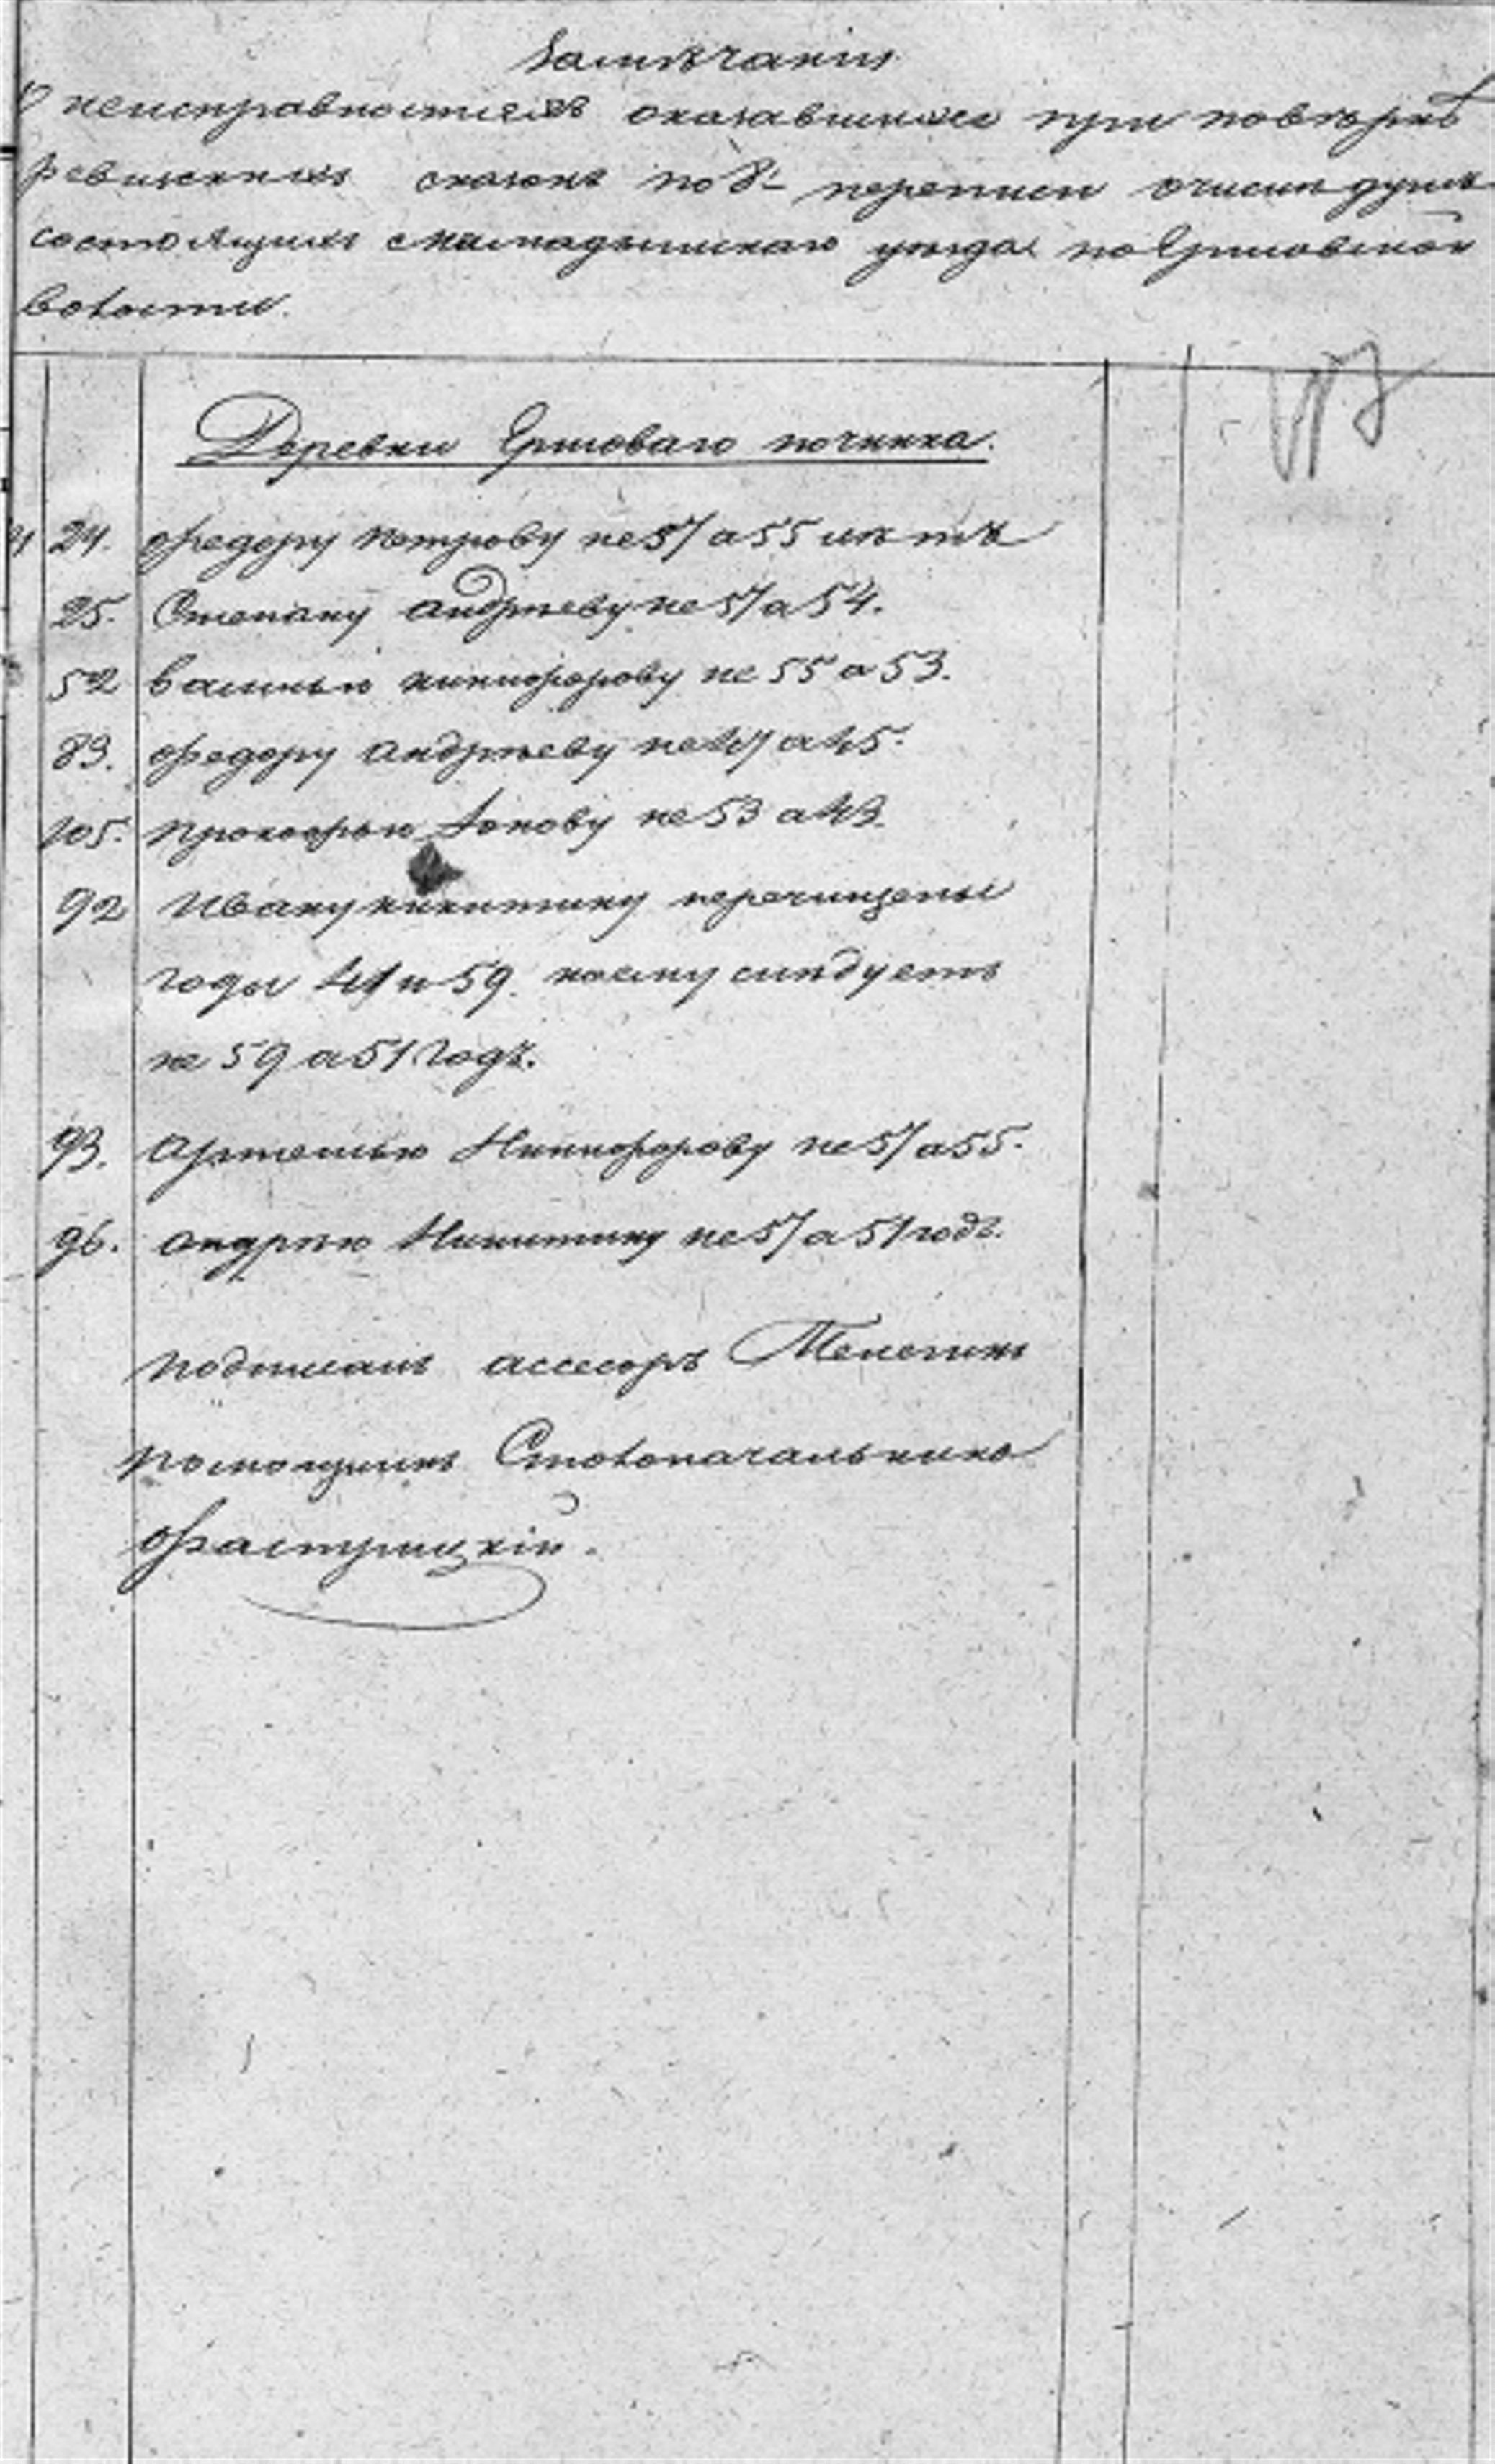 Замѣчанія
О неисправностяхъ оказавшихся при повѣркѣ
ревизскихъ сказокъ по 8й переписи о числѣ душъ
состоящихъ Мамадышскаго уѣзда по Ершовской
волости.
Деревни Ершоваго починка.
24. Федору Петрову не 57 а 55 лѣтъ
25. Степану Андрѣеву не 57 а 54.
52 Василью Никифорову не 55 а 53.
83. Федору Андрѣеву не 47 а 45.
105. Прокофью Іонову не 53 а 43.
92 Ивану Никитину перечищены
годы 41 и 59. коему слѣдуетъ
не 59 а 51 годъ.
93. Артемью Никифорову не 57 а 55.
96. Андрѣю Никитину не 57 а 51 годъ.
Подписалъ ассесоръ Телегинъ
Помощникъ Столоначальника